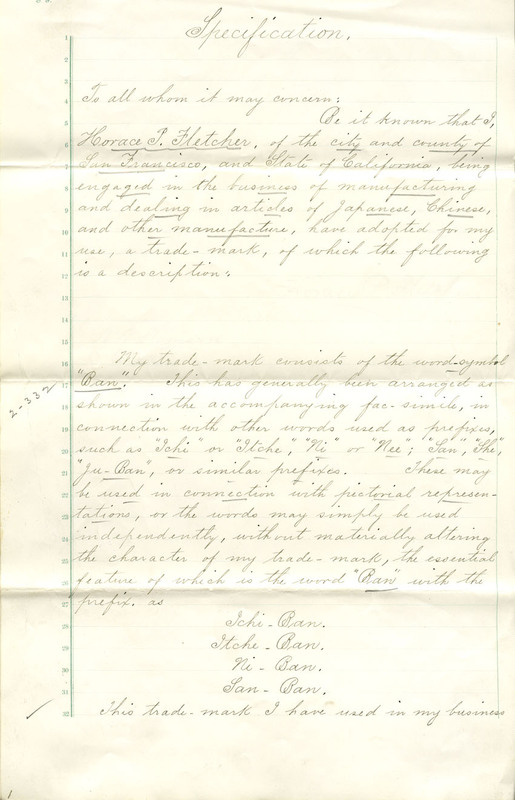 Specification.
1
2
3
4
5
6
7
8
9
10
11
12
13
14
15
16
17
18
19
20
21
22
23
24
25
26
27
28
29
30
31
32
To all whom it may concern:
Be it known that I,
Horace P. Fletcher, of the city and county of
San Francisco, and State of California, being
engaged in the business of manufacturing
and dealing in articles of Japanese, Chinese,
and other manufacture, have adopted for my
use, a trade-mark, of which the following
is a description:
My trade-mark consists of the word-symbol
"Ban". This has generally been arranged as
shown in the accompanying fac-simile, in
connection with other words used as prefixes,
such as "Ichi" or "Itche", "Ni" or "Nee"; "San", "She",
"Ju-Ban", or similar prefixes. These may
be used in connection with pictorial represen-
tations, or the words may simply be used
independently, without materially altering
the character of my trade-mark, the essential
feature of which is the word "Ban" with the
prefix. as
Ichi-Ban.
Itche-Ban.
Ni-Ban.
San-Ban.
This trade-mark I have used in my business
2-332